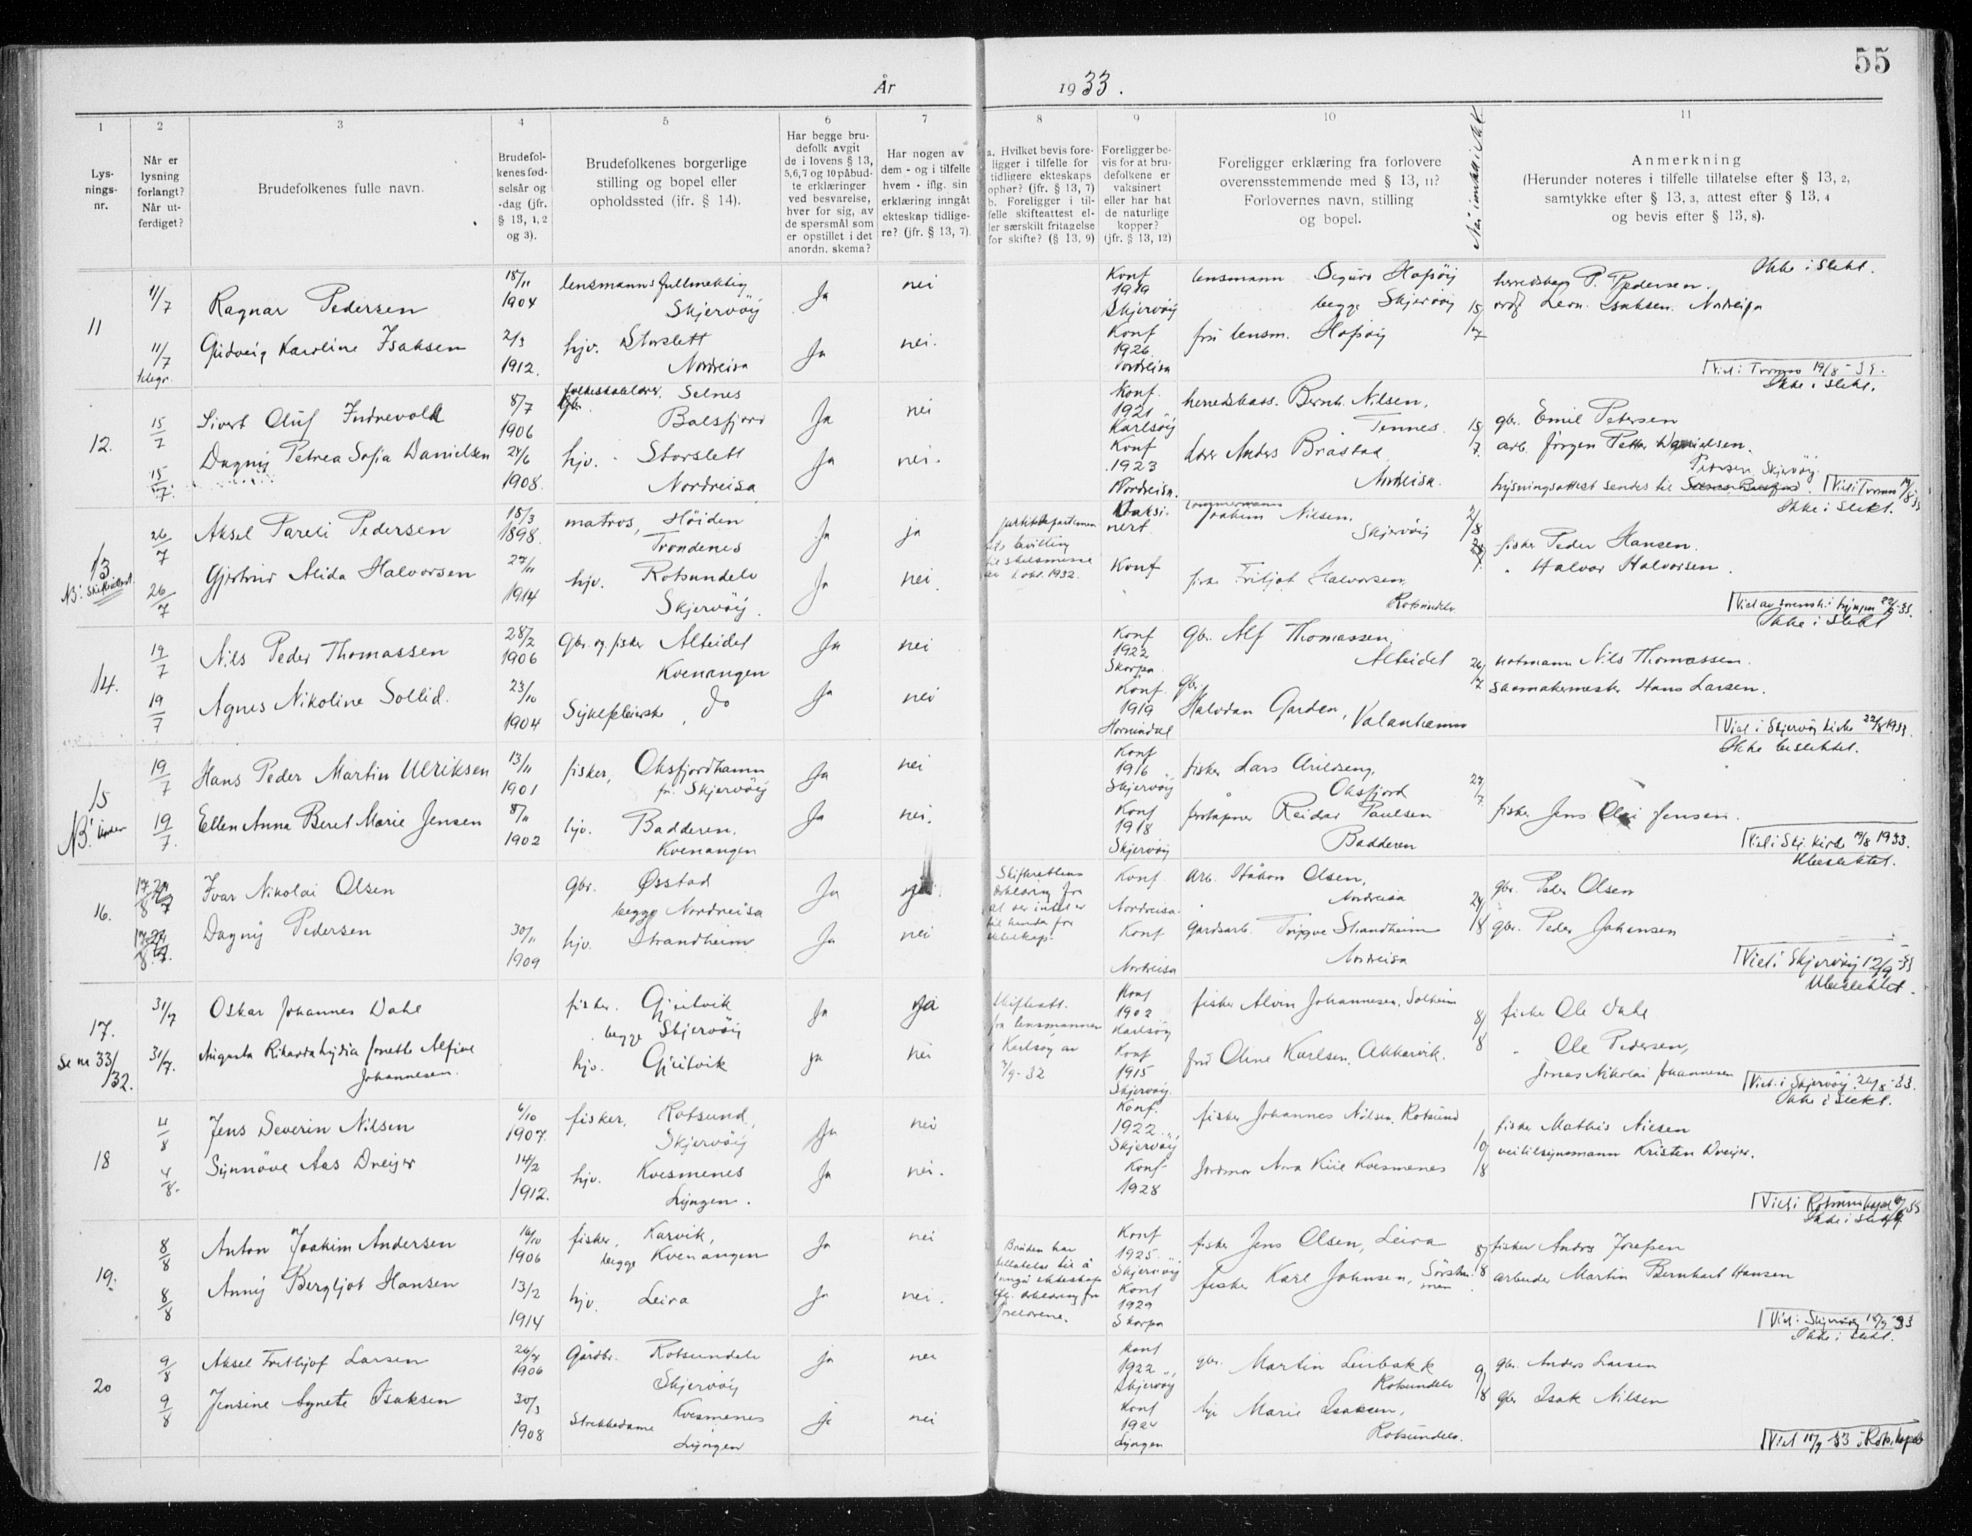 55
År 1933.
1
2
3
4
5
6
7
8
9
10
11
Lys-
nings-
nr.
Når er
lysning
forlangt?
Når ut-
ferdiget?
Brudefolkenes fulle navn.
Brudefol-
kenes fød-
selsår og
-dag (jfr.
§ 13, 1, 2
og 3).
Brudefolkenes borgerlige
stilling og bopel eller
opholdssted (ifr. § 14).
Har begge bru-
defolk avgit
de i lovens § 13,
5,6,7 og 10 påbud-
te erklæringer
ved besvarelse,
hver for sig, av
de spørsmål som
er opstillet i det
anordn. skema?
Har nogen av
dem - og i tilfelle
hvem - iflg. sin
erklæring inngåt
ekteskap tidlige-
re? (jfr. § 13, 7).
a. Hvilket bevis fore-
ligger i tilfelle for
tidligere ekteskaps
ophør? (jfr. § 13, 7)
b. Foreligger i til-
felle skifteattest el-
ler særskilt fritagelse
for skifte? (§ 13, 9)
Foreligger be-
vis for at bru-
defolkene er
vaksinert
eller har hat
de naturlige
kopper?
(jfr. § 13, 12)
Foreligger erklæring fra forlovere
overensstemmende med § 13, 11?
Forlovernes navn, stilling
og bopel.
Anmerkning
(Herunder noteres i tilfelle tillatelse efter § 13, 2,
samtykke efter § 13, 3, attest efter § 13, 4
og bevis efter § 13, 8).
11
11/7
Ragnar Pedersen
18/11
1904
lensmannsfullmektig
Skjervöy
Ja
nei
Konf
1919
Skjervöy
lensmann Sigurd Hofsöy
begge Skjervöy
15/7
herredskass P. Pedersen.
Ikke i slekt.
11/7
telegr.
Gudveig Karoline Isaksen
2/3
1912.
hjv. Storslett
Nordreisa
Ja
nei.
Konf
1926
Nordreisa
fru lensm. Hofsöy
ordf. Leon. Isaksen. Nordreisa
Viet i Tromsø 19/8-33.
12.
15/7
Sivert Oluf Indrevold
8/7
1906
folkeskolelærer. Selnes
Balsfjord
Ja
nei
Konf.
1921
Karlsöy
herredskass. Bernh. Nilsen,
Tennes.
15/7.
gbr. Emil Petersen
Ikke i slekt.
15/7.
Dagny Petrea Sofia Danielsen
24/6
1908.
hjv. Storslett
Nordreisa
Ja
nei.
Konf
1923
Nordreisa.
lærer Anders Bråstad
Nordreisa.
arb. Jörgen Petter Danielsen.
Lysningsattest sendes til
Skjervöy.
Viet i Tromsø
13
26/7
Aksel Pareli Pedersen
18/3
1898.
matros, Höiden
Trondenes
Ja
ja
Justitsdepartemen
tets bevilling
til skilsmisse
1932.
Vaksi-
nert
Joakim Nilsen,
Skjervöy
2/8
fisker Peder Hansen.
Ikke i slekt.
26/7
Gjertrud Alida Halvorsen
27/11
1914
hjv. Rotsundelv
Skjervöy.
Ja
nei.
Konf
fisker Fritjof Halvorsen,
Rotsundelv
" Halvor Halvorsen.
14.
19/7
Nils Peder Thomassen
28/2
1906
gbr. og fisker Alteidet
Kvenangen
Ja
nei
Konf
1922
Skorpa
gbr. Alf Thomassen,
Alteidet
26/7
notmann Nils Thomassen.
Ikke i slekt
19/7
Agnes Nikoline Sollid.
23/10
1904
Sykepleierske, do
Ja
nei
Konf.
1919
Hornindal
gbr.
Halvdan Garden, Valanhamn
saomakermester Hans Larsen.
Viet i Skjervöy kirke 22/8 1933.
15
19/7
Hans Peder Martin Ulriksen
13/11
1901
fisker, Oksfjordhamn
Skjervöy
Ja
nei
Konf
1916
Skjervöy
fisker Lars Arildseng,
Oksfjord
27/7
Ikke beslektet.
NB!
19/7.
Ellen Anna Beret Marie Jensen
8/11
1902
hjv. Badderen.
Kvenangen
Ja
nei.
Konf
1918
Skjervöy
forpakter Reidar Paulsen
Badderen
fisker Jens Olai Jensen.
Viet i Skj. kirke 19/8 1933.
16.
Ivar Nikolai Olsen
gbr. Øsstad
begge Nordreisa
Ja
ja
Skifterettens
erklæring for
at der intet er
til hinder for
ekteskap.
Konf.
Nordreisa.
arb. Håkon Olsen,
Nordreisa
24/8
gbr. Peder Olsen
Ubeslektet.
Dagny Pedersen
30/11
1909
hjv. Strandheim
Ja
nei
Konf
Nordreisa
gardsarb. Trygve Strandheim
Nordreisa
gbr. Peder Johansen
Viet i Skjervöy 12/9-33
17.
31/7
Oskar Johannes Dahl
fisker. Gjulvik
begge Skjervöy
Ja
ja
Skifteatt.
fra lensmannen
i Karlsöy av
7/9-32
Konf
1902
Karlsöy
fisker Alvin Johannesen. Solheim
8/8
fisker Ole Dahl
Ubeslektet.
Se nr 33/32.
31/7.
Augusta Rikarda Lydia Jonette Alfine
Johannesen.
hjv. Gjulvik
ja
nei
Konf
1915
Skjervöy.
fru Oline Karlsen, Akkarvik.
" Ole Pedersen,
Jonas Nikolai Johannesen
18
4/8
Jens Severin Nilsen
6/10
1907.
fisker, Rotsund,
Skjervöy
Ja
nei
Konf.
1922
Skjervöy
fisker Johannes Nilsen, Rotsund
10/8
fisker Mathis Nilsen
Ikke i slekt.
4/8.
Synnöve Aas Dreyer
14/2
1912.
hjv. Kvesmenes
Lyngen.
Ja
nei.
Konf.
1928
Jordmor Anna Kiil Kvesmenes
veitilsynsmann Kristen Dreyer.
19.
8/8
Anton Joakim Andersen
16/10
1906
fisker, Karvik,
begge Kvenangen
Ja
nei
Bruden har
tillatelse til å
inngå ekteskap
iflg. erklæring fra
foreldrene.
Konf
1925
Skjervöy
fisker Jens Olsen, Leira
8/8
fisker Andrs Josefsen
Ikke i slekt.
8/8
Anny Bergljot Hansen
13/2
1914
hjv. Leira
Ja
nei.
Konf
1929
Skorpa
fisker Karl Johnsen,
arbeider Martin Bernhart Hansen
20
9/8
Aksel Frithjof Larsen
1906
Gårdbr. Rotsundelv
Skjervöy
ja
nei
Konf
1922
Skjervöy
gbr. Martin Leirbakk
Rotsundelv
9/8
gbr. Anders Larsen
Ikke i slekt.
9/8
Jensine Agnete Isaksen
30/3
1908
Strikkedame Kvesmenes
Lyngen
ja
nei
Konf
1924
Lyngen
hjv Marie Isaksen,
Rotsundelv.
gbr Isak Nilsen